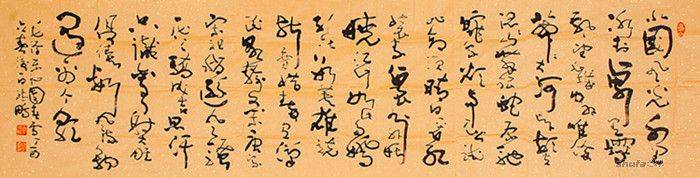 北国风光千里
冰封万里雪
飘望长城内外惟余
莽莽大河上下顿
失滔滔山舞银蛇原驰
蜡象欲与天公试
比高须晴日看红
装素裹分外妖
娆江山如此多娇
引无数英雄竞
折腰惜秦皇汉
武略输文采唐
宗宋祖稍逊风骚
一代天骄成吉思汗
只识弯弓射大雕
俱往矣数风流人物
还看今朝
毛泽东沁园春雪